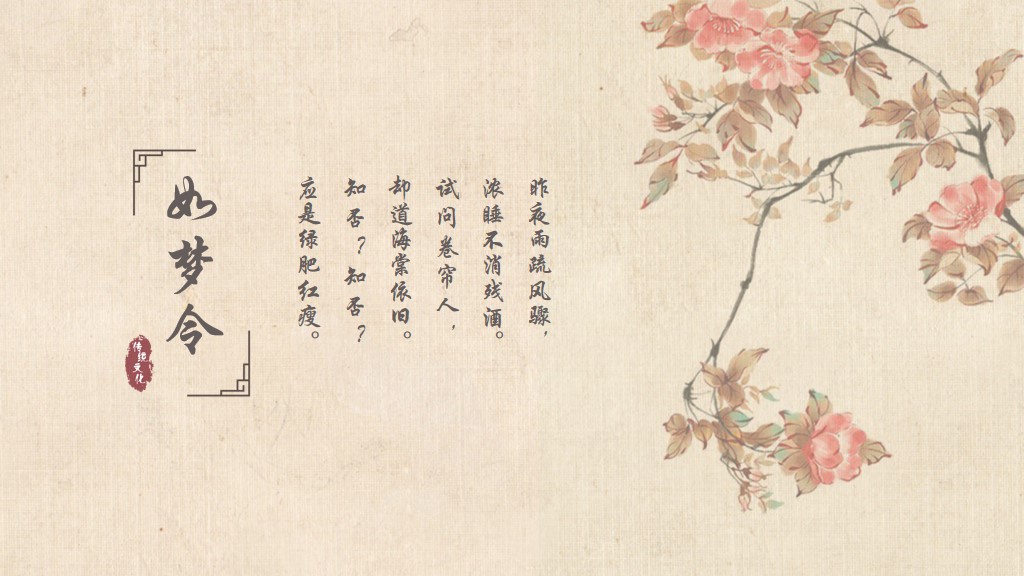 如梦令
传统文化
昨夜雨疏风骤，
浓睡不消残酒。
试问卷帘人，
却道海棠依旧。
知否？知否？
应是绿肥红瘦。